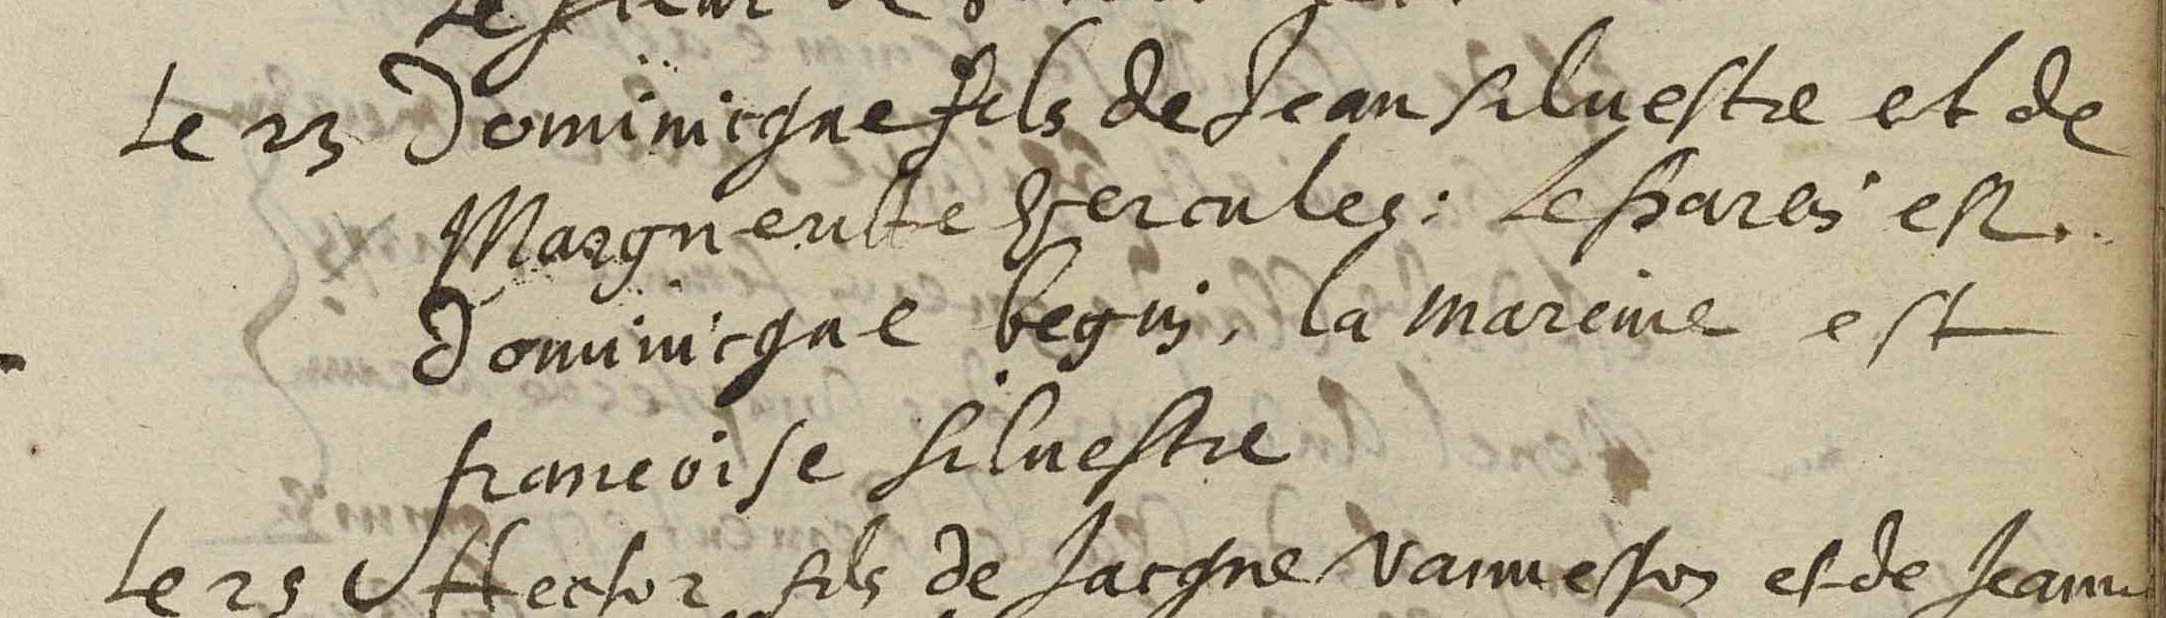 Le sieur de
Le 23 Dominicque fils de Jean siluestre et de
Marguerite Hercules: Le parein est
Dominicque begin, la mareine est
francoise siluestre
Le 25 Hector fils de Jacque Vannesson et de Jeanne